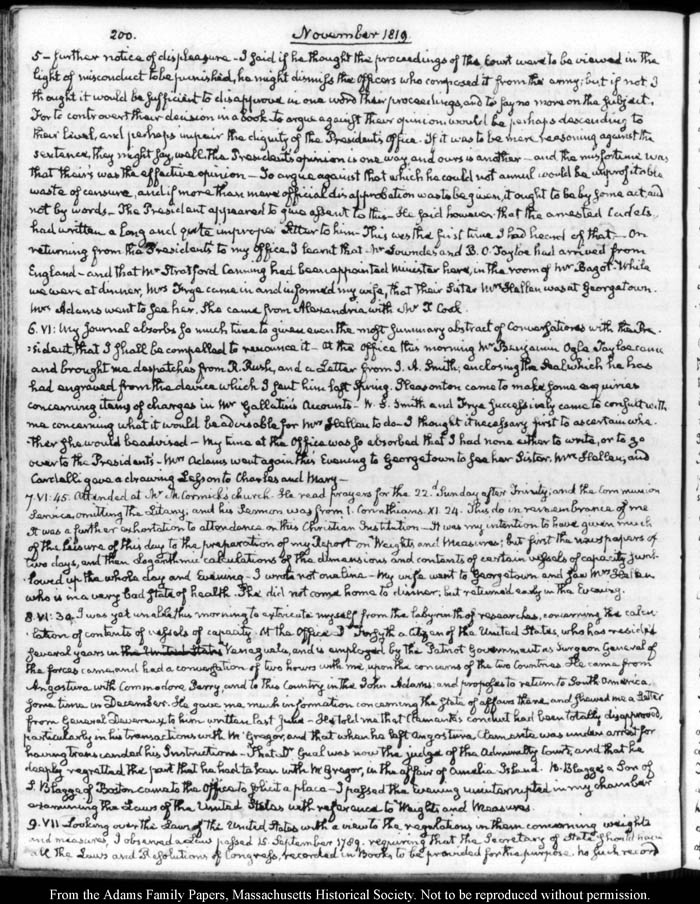 200. November 1819
5 - further notice of displeasure - I said if he thought the proceedings of the Court were to be viewed in the
light of misconduct to be punished, he might dismiss the Officers who composed it from the army; but if not, I
thought it would be sufficient to disapprove in one word their proceedings, and to say no more on the subject.
For to controvert their decision in a book - to argue against their opinion would be perhaps descending to
their level, and perhaps impair the dignity of the President's Office. If it was to be mere reasoning against the
sentence, they might say, well. the President's opinion is one way and ours is another - and the misfortune was
that their's was the effective opinion - To argue against that which he could not annul would be unprofitable
waste of censure, and if more than mere official disapprobation was to be given, it ought to be by some act and
not by words - The President appeared to give assent to this - He said however that the arrested Cadets
had written a long and quite improper Letter to him - This was the first time I had heard of that - On
returning from the Presidents to my Office I learnt that Mr Lowndes and B. O. Tayloe had arrived from
England - and that Mr Stratford Canning had been appointed Minister here, in the room of Mr Bagot. While
we were at dinner, Mrs Frye came in and informed my wife, that their Sister Mrs Hellen was at Georgetown.
Mrs Adams went to see her. She came from Alexandria with Mr T. Cook.
6. VI: My Journal absorbs so much time to given even the most summary abstract of Conversations with the Pre-
:sident, that I shall be compelled to renounce it - At the Office this morning Mr Benjamin Ogle Tayloe came
and brought me despatches from R. Rush, and a Letter from J. A. Smith, enclosing the Seal which he has
had engraved from the device which I sent him last Spring. Pleasonton came to make some enquiries
concerning items of charges in Mr Gallatin's Accounts - W. S. Smith and Frye successively came to consult with
me concerning what it would be advisable for Mrs Hellen to do - I thought it necessary first to ascertain whe-
:ther she would be advised - My time at the Office was so absorbed that I had none either to write, or to go
over to the Presidents - Mrs Adams went again this Evening to Georgetown to see her Sister. Mrs Hellen, and
Cardelli gave a drawing Lesson to Charles and Mary -
7. VI: 45. Attended at Mr McCormick's church. He read prayers for the 22.d Sunday after Trinity, and the Communion
Service, omitting the Litany; and his Sermon was from 1. Corinthians. XI. 24. This do in remembrance of me
It was a further exhortation to attendance on this Christian Institution - It was my intention to have given much
of the leisure of this day to the preparation of my Report on Weights and Measures; but first the newspapers of
two days, and then Logarithmic calculations of the dimensions and contents of certain vessels of capacity swal-
lowed up the whole day and Evening - I wrote not one line - My wife went to Georgetown and saw Mrs Hellen
who is in a very bad state of health. She did not come home to dinner, but returned early in the Evening.
8. VI: 30. I was yet unable this morning to extricate myself from the labyrinth of researches, concerning the calcu-
lation of contents of vessels of capacity. At the Office Dr Forsyth a Citizen of the United States, who has resided
several years in the United States Venezuela, and is employed by the Patriot Government as Surgeon General of
the forces came, and had a conversation of two hours with me, upon the concerns of the two Countries. He came from
Angostura with Commodore Perry, and to this Country in the John Adams, and proposes to return to South America,
some time in December. He gave me much information concerning the State of affairs there, and shewed me a Letter
from General Devereux to him written last July - He told me that Clemente's conduct had been totally disapproved,
particularly in his transactions with McGregor, and that when he left Angostura, Clemente was under arrest for
having transcended his Instructions - That Dr Gual was now the judge of the Admiralty Court, and that he
deeply regretted the part that he had taken with McGregor, in the affair of Amelia Island. W. Blagge, a Son of
J. Blagge of Boston came to the Office to solicit a place - I passed the evening uninterrupted in my chamber
examining the Laws of the United States with reference to Weights and Measures.
9. VII Looking over the Laws of the United States with a view to the regulations in them concerning weights
and measures, I observed a Law passed 15. September 1789. requiring that the Secretary of State should have
all the Laws and Resolutions of Congress, recorded in Books to be provided for the purpose. No such record
From the Adams Family Papers, Massachusetts Historical Society. Not to be reproduced without permission.